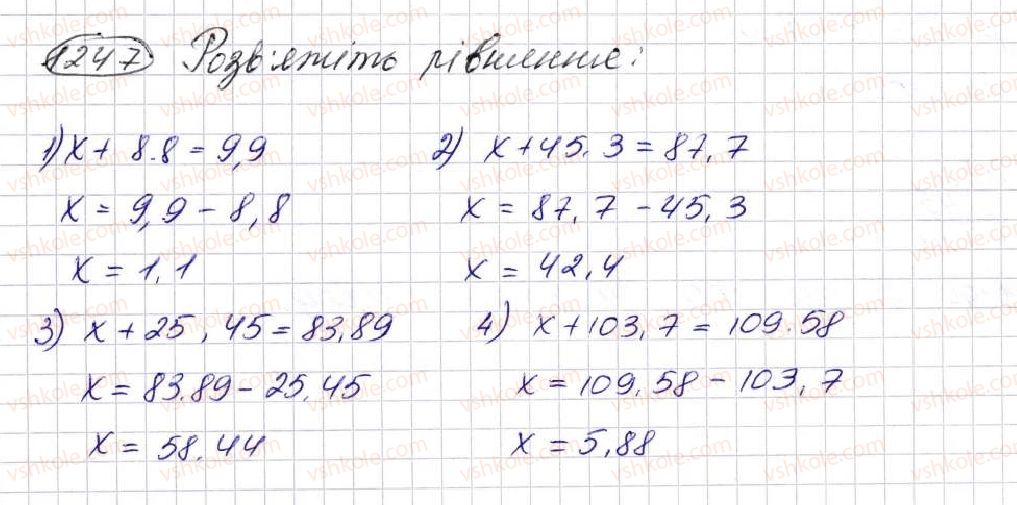 1247 Розв'яжіть рівняння:
1) x + 8.8 = 9,9
x = 9,9 - 8,8
x = 1,1
2) x + 45.3 = 87,7
x = 87,7 - 45,3
x = 42,4
3) x + 25,45 = 83,89
x = 83.89 - 25.45
x = 58.44
4) x + 103,7 = 109.58
x = 109.58 - 103,7
x = 5,88
vshkole.com